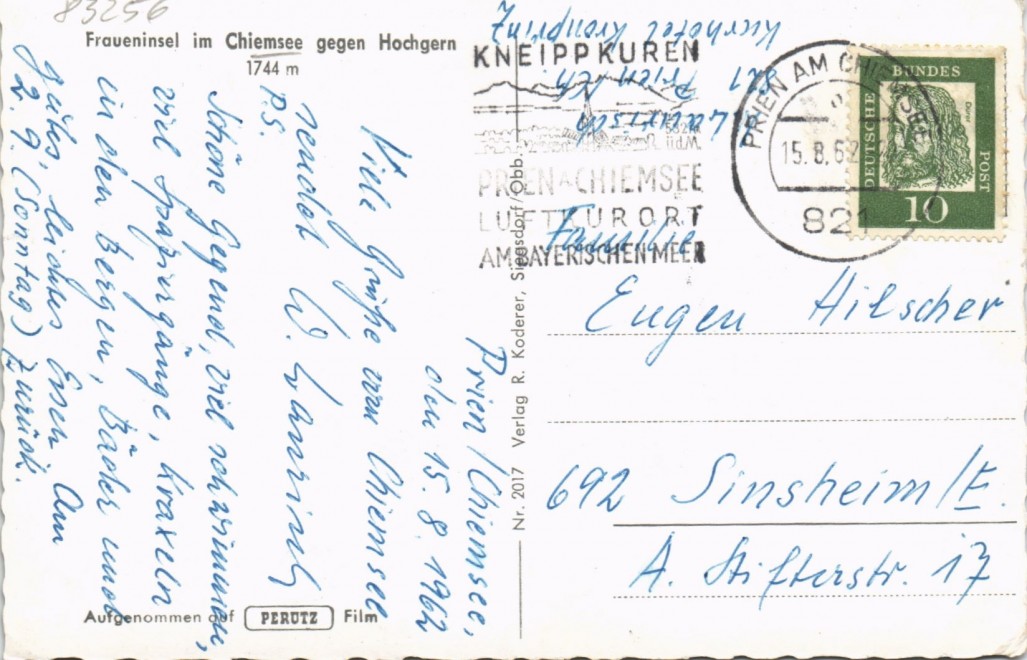 83256
Fraueninsel im Chiemsee gegen Hochgern
1744 m
Prien/Chiemsee,
den 15.8.1962
Viele Grüße vom Chiemsee
sendet W.
P.S.
Schöne Gegend, viel schwimmen,
viel Spaziergänge, Kraxeln
in den Bergen, Bäder und
gutes, leichtes Essen. Am
2.9. (Sonntag) zurück.
Aufgenommen auf PERUTZ Film
Nr. 2017 Verlag R. Koderer, Siegsdorf/Obb.
821 Prien/Ch.
Kurhotel Kronprinz
KNEIPPKUREN
PRIEN A CHIEMSEE
LUFTKURORT
AM BAYERISCHEN MEER
PRIEN AM CHIEMSEE
15.8.62
821
DEUTSCHE BUNDESPOST
10
Familie
Eugen Hilscher
692 Sinsheim/E.
A. Stifterstr. 17